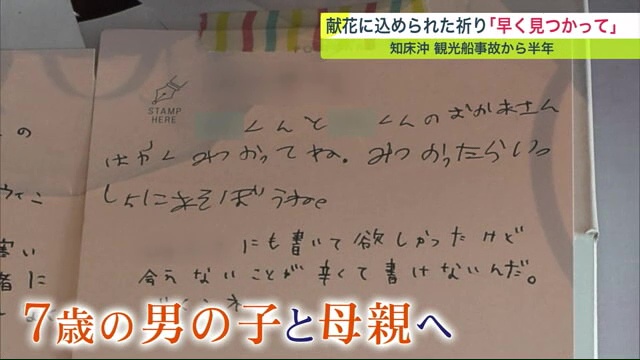 献花に込められた祈り「早く見つかって」
知床沖 観光船事故から半年
STAMP
HERE
くんと くんのおかあさん
はやく みつかってね。みつかったらいっ
しょにあそぼうね。
にも書いて欲しかったけど
会えないことが辛くて書けないんだ。
の
ウィン
に
7歳の男の子と母親へ